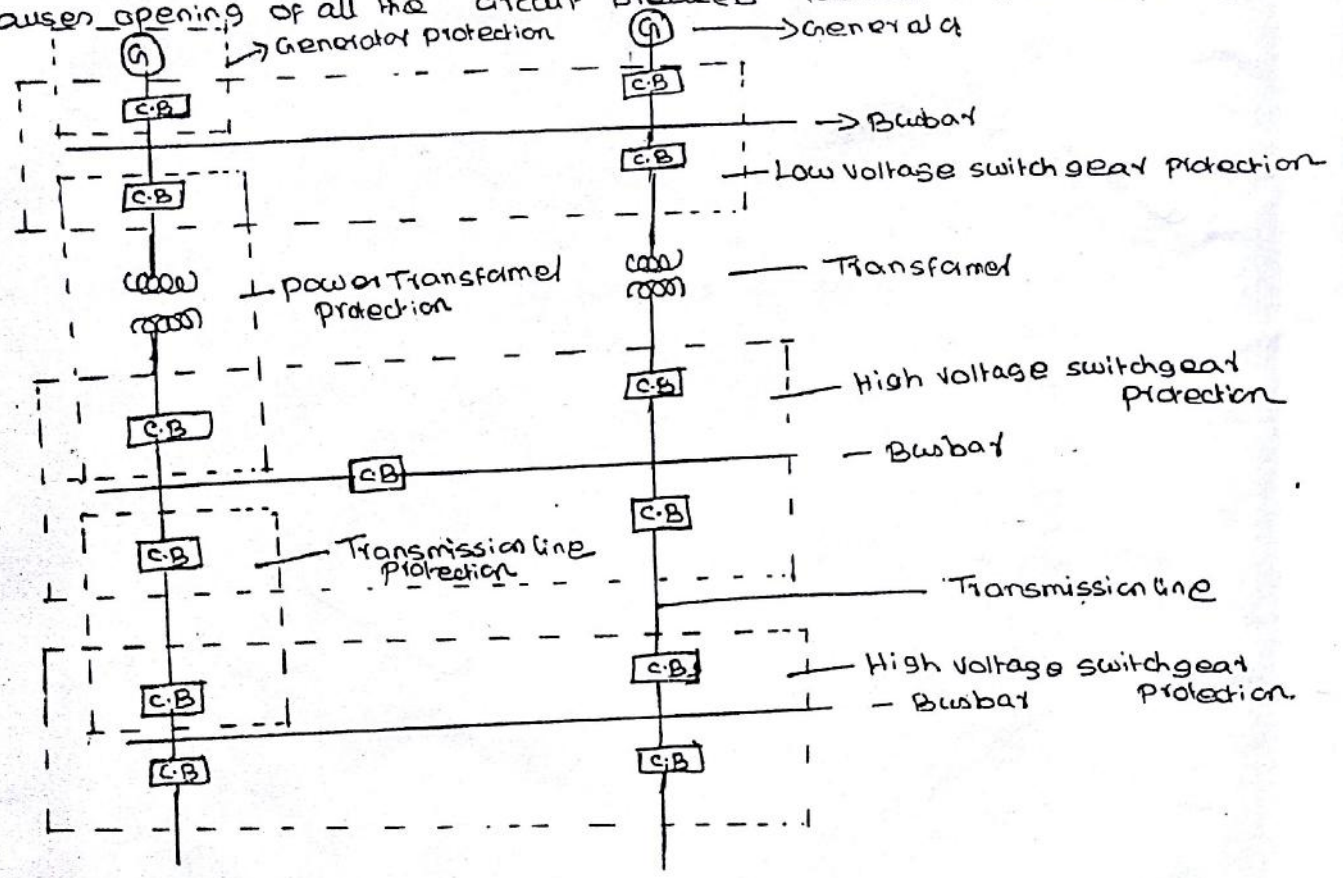 auses opening of all the circuit
G
→ Generator protection
G
→ Generator
C.B
C.B
→ Busbar
C.B
C.B
Low voltage switchgear protection
Power Transformer
protection
Transformer
C.B
C.B
High voltage switchgear
protection
C.B
– Busbar
C.B
C.B
Transmission line
protection
Transmission line
C.B
C.B
High voltage switchgear
protection.
– Busbar
C.B
C.B